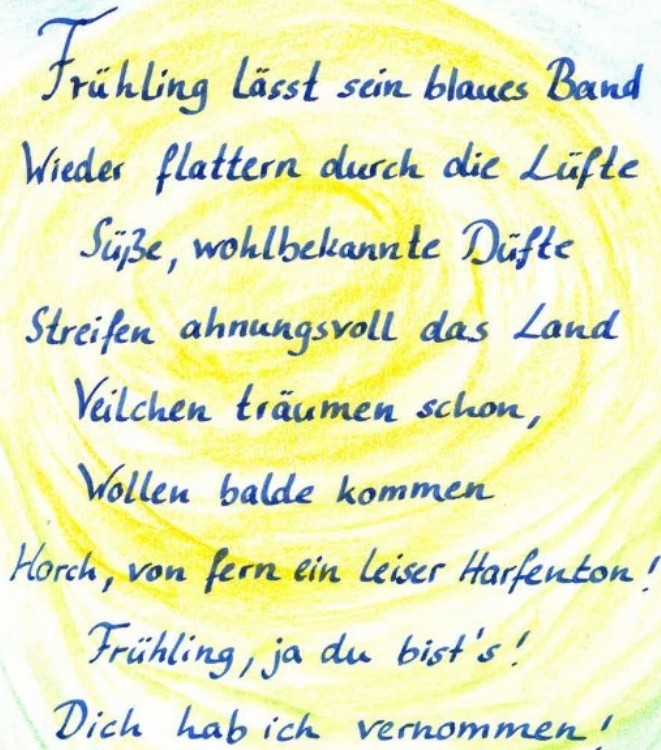 Frühling lässt sein blaues Band
Wieder flattern durch die Lüfte
Süße, wohlbekannte Düfte
Streifen ahnungsvoll das Land
Veilchen träumen schon,
Wollen balde kommen
Horch, von fern ein leiser Harfenton!
Frühling, ja du bist's!
Dich hab ich vernommen!